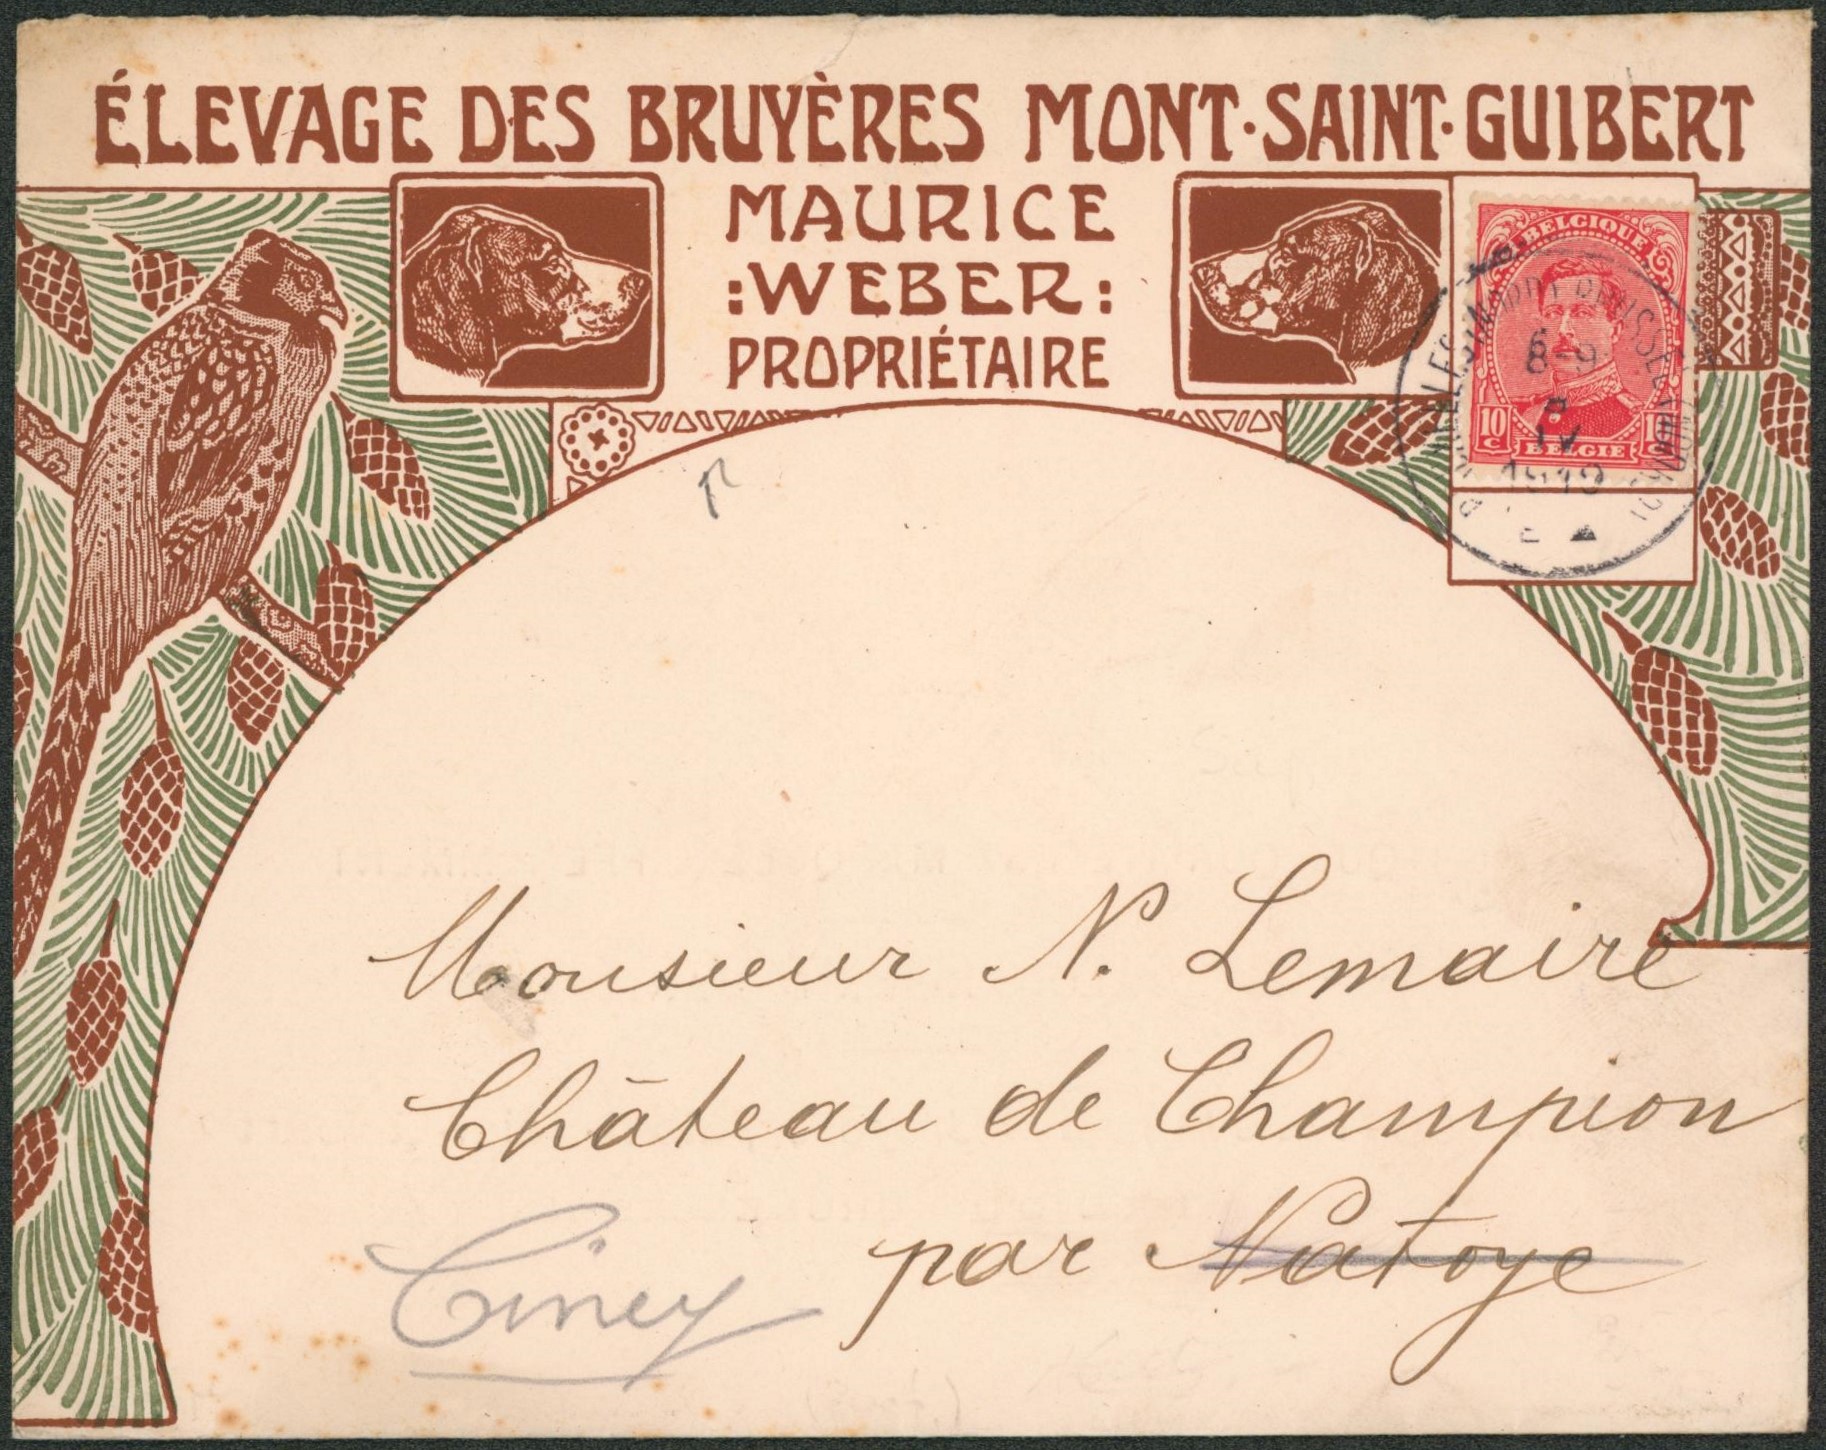 ÉLEVAGE DES BRUYÈRES MONT·SAINT·GUIBERT
MAURICE
:WEBER:
PROPRIÉTAIRE
BELGIQUE
10 C
BELGIE
8-9
IV
1919
Monsieur N. Lemaire
Château de Champion
par Natoye
Ciney